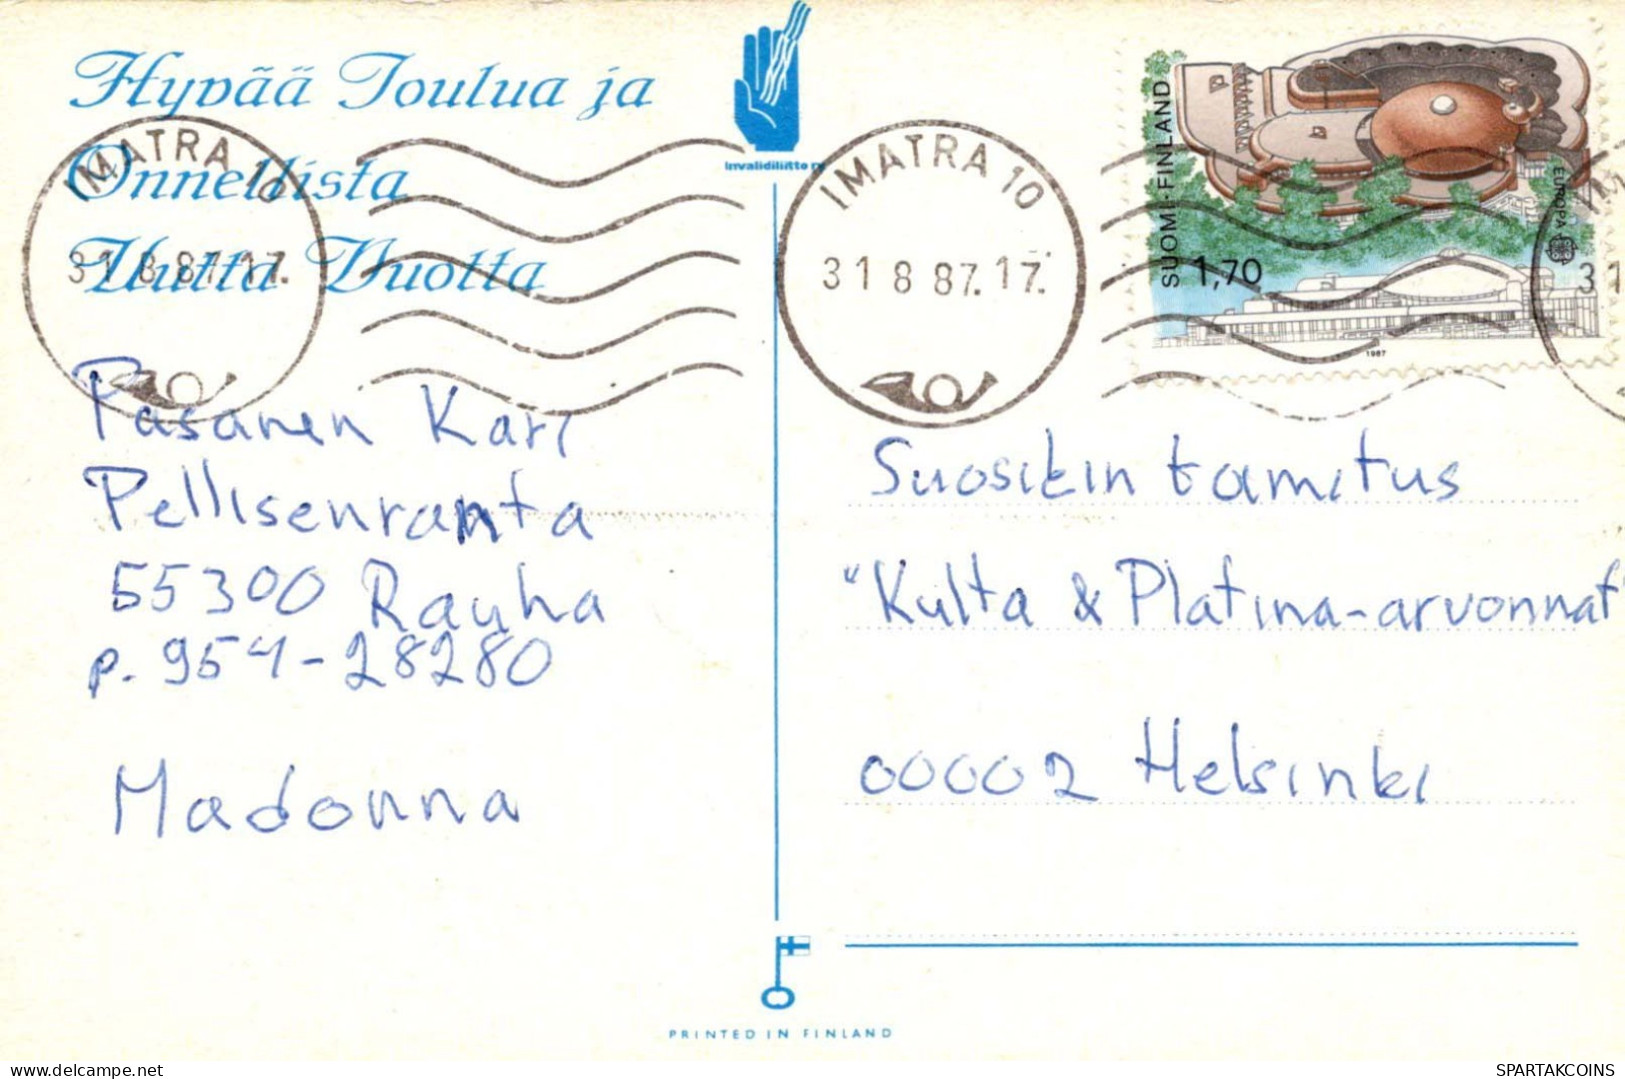 Hyvää Joulua ja
Onnellista
Uutta Vuotta
Invalidiliitto ry
IMATRA 10
31 8 87.17.
IMATRA 10
31 8 87.17.
SUOMI-FINLAND
1,70
EUROPA
1987
31
Pasanen Kari
Pellisenranta
55300 Rauha
p. 954-28280
Madonna
Suosikin toimitus
"Kulta & Platina-arvonnat"
00002 Helsinki
PRINTED IN FINLAND
SPARTAKCOINS